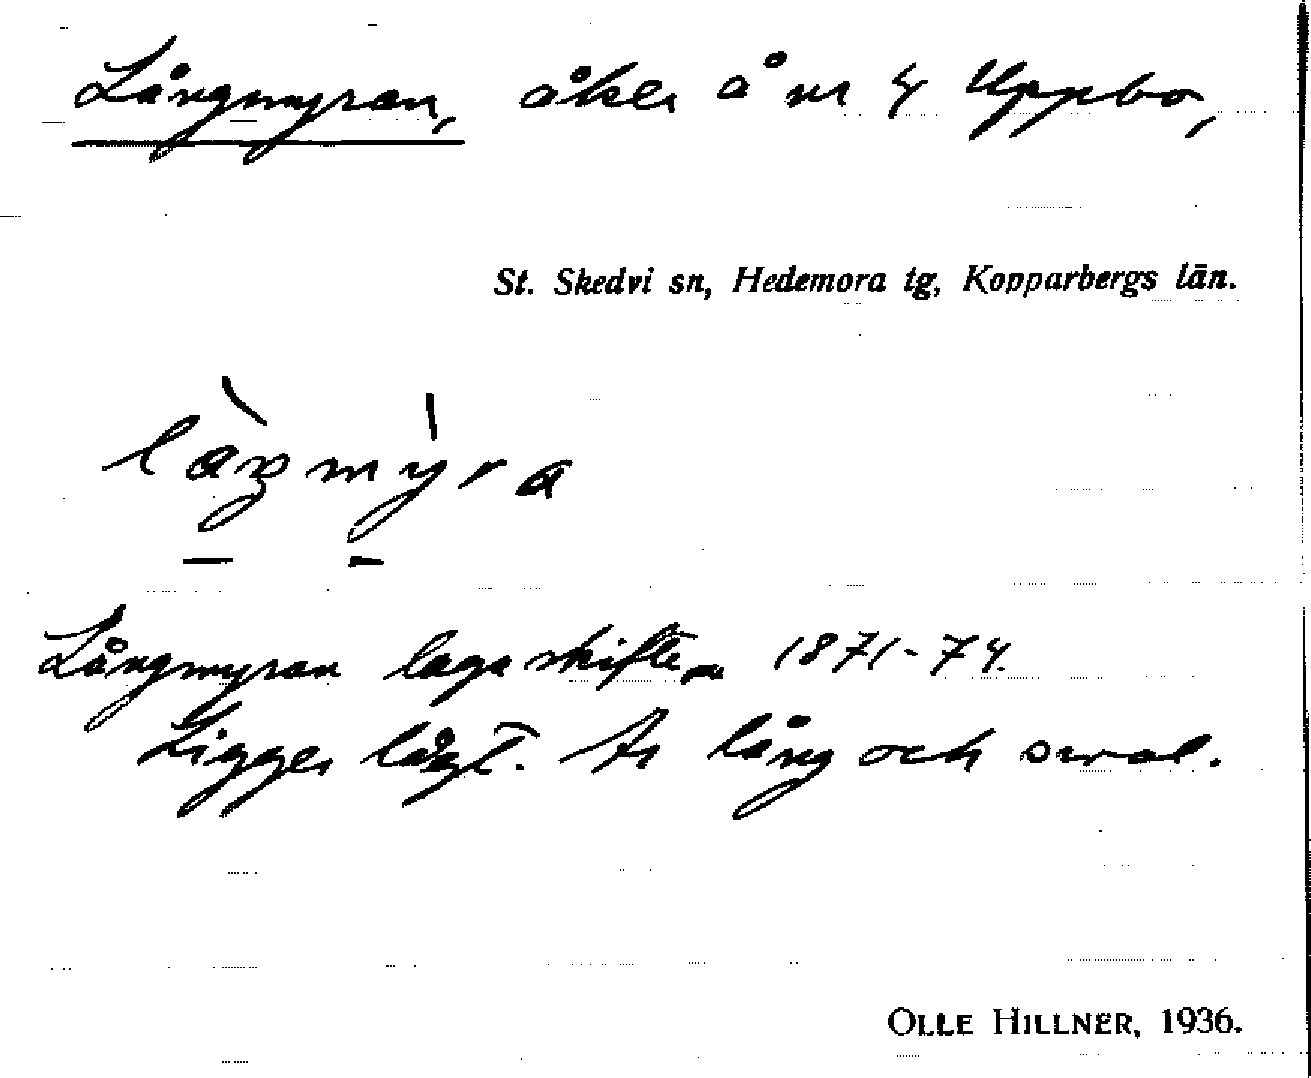 Långmyran, åker å nr 4 Uppbo,
St. Skedvi sn, Hedemora tg, Kopparbergs län.
Långmyran laga skiften 1871-74.
Ligger lågt. Är lång och smal.
OLLE HILLNER, 1936.